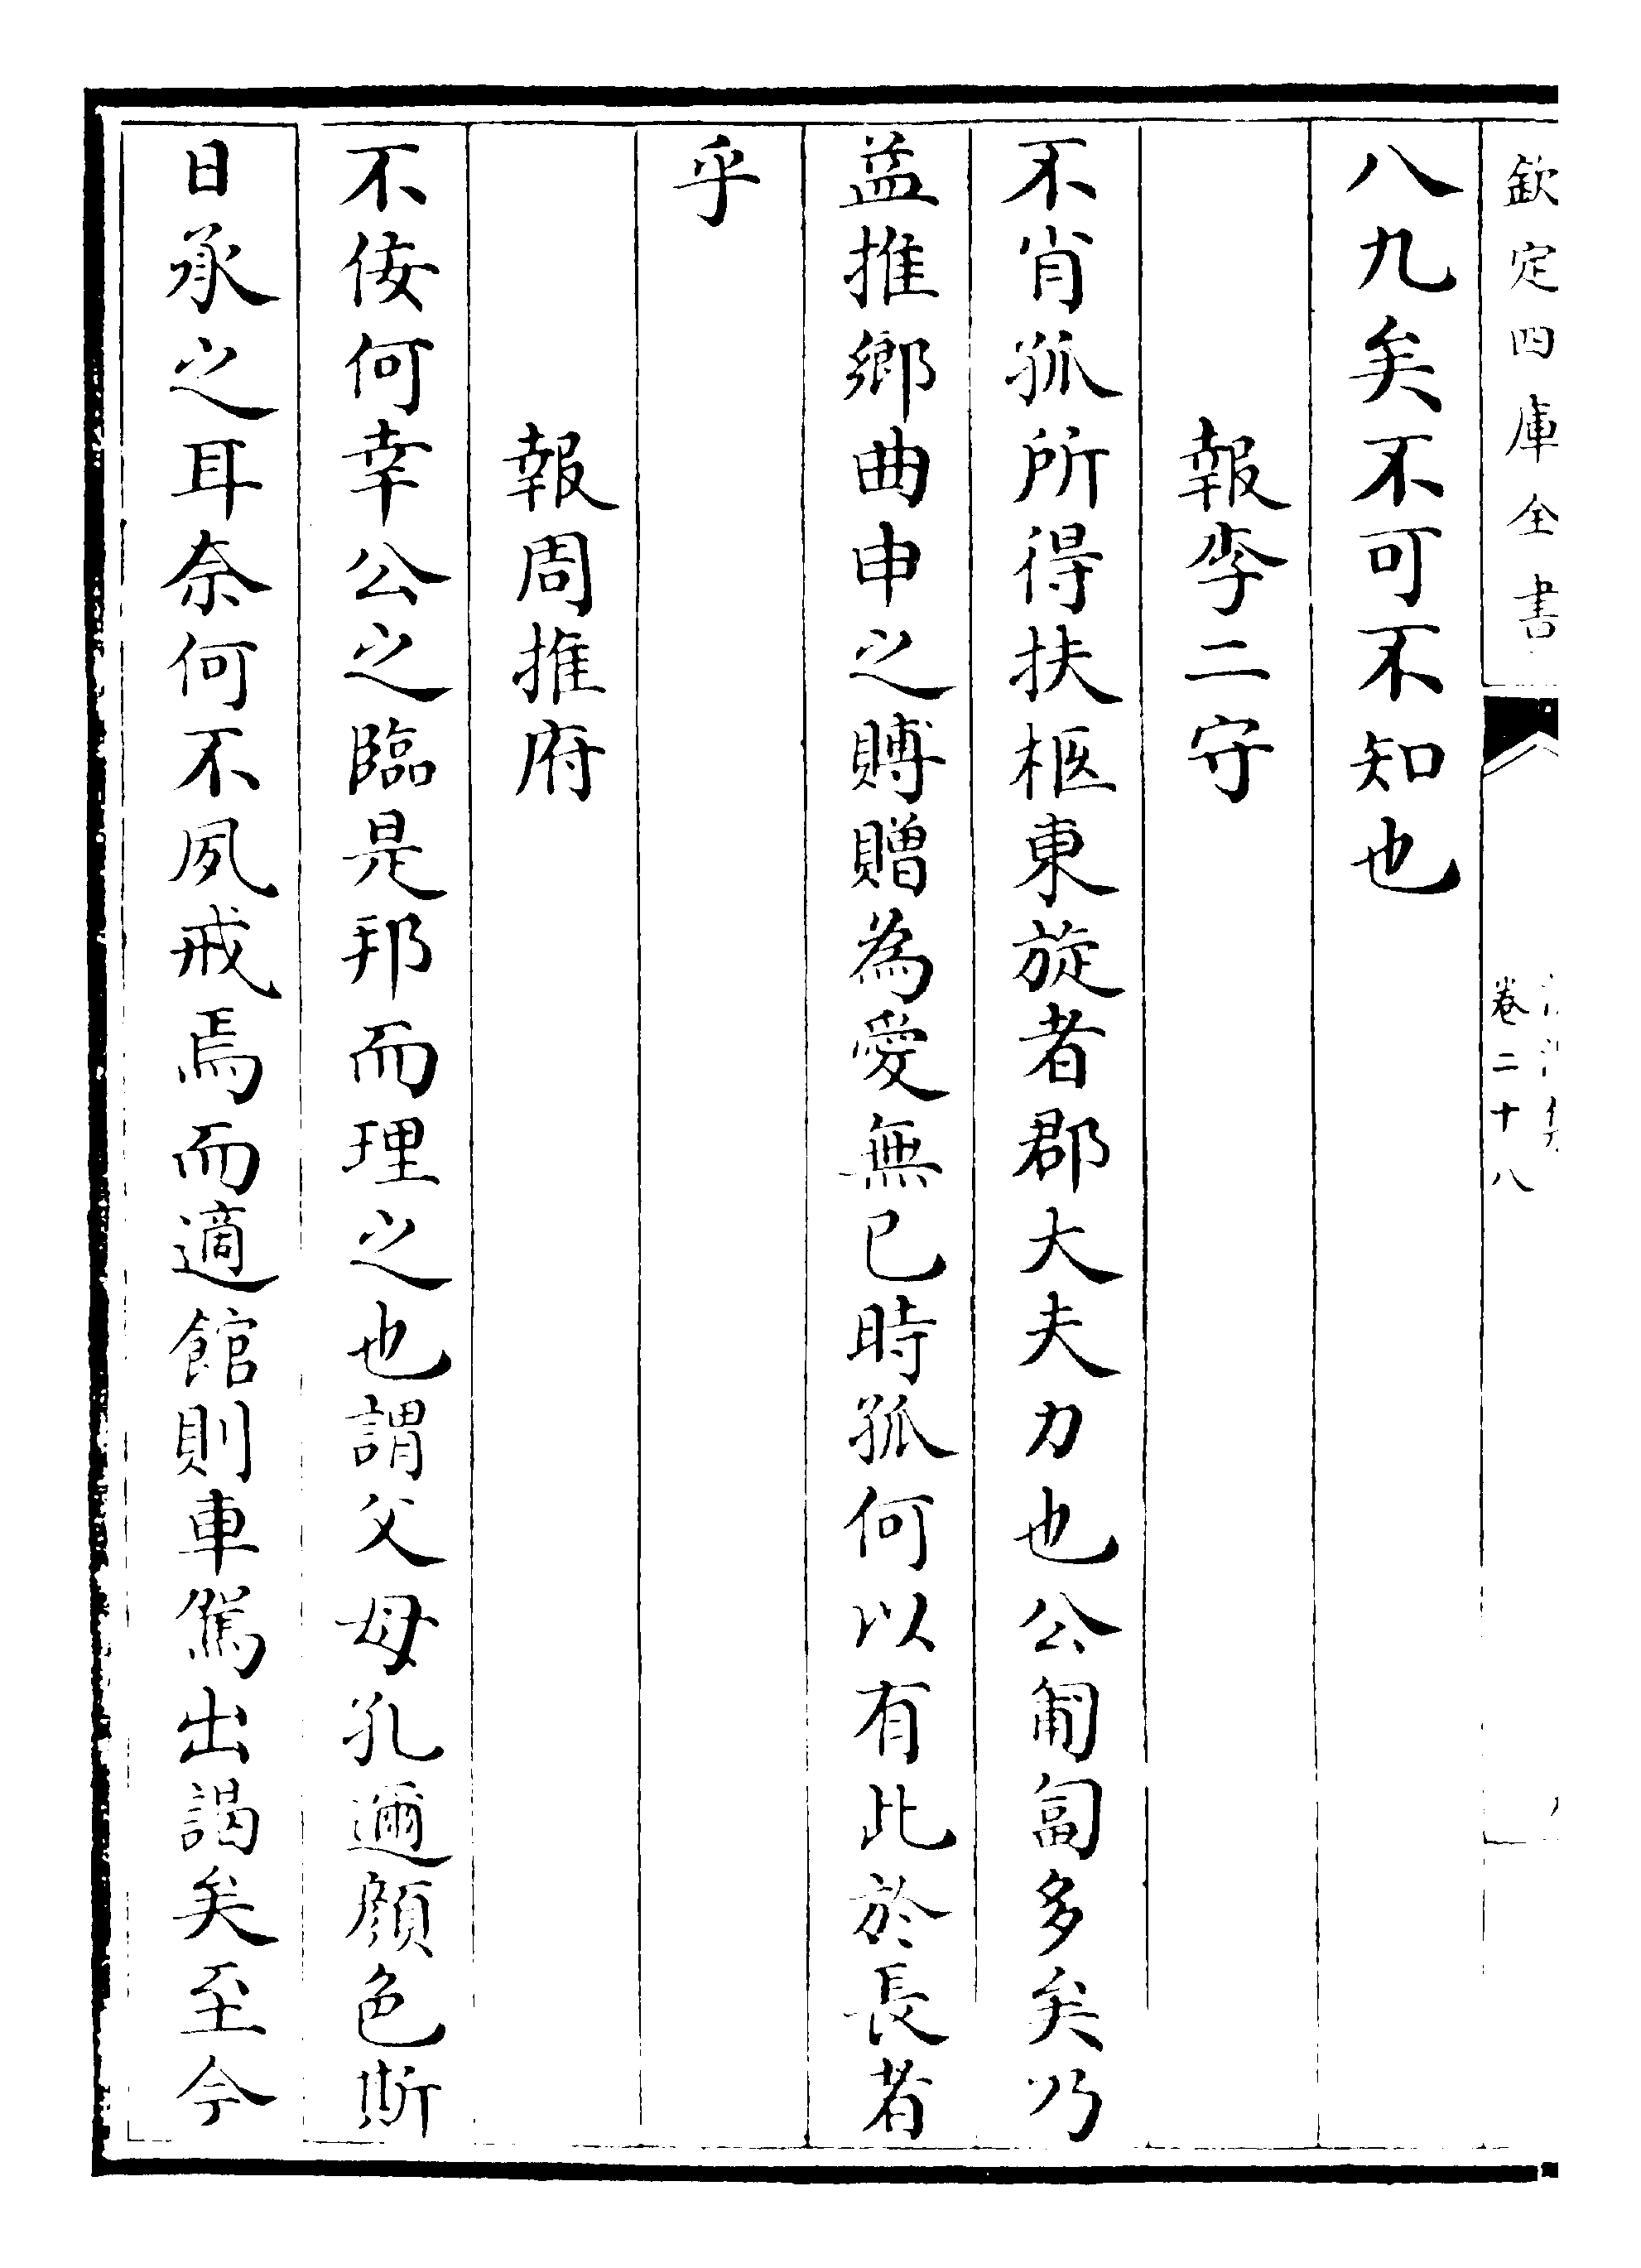 欽定四庫全書
卷二十八
八九矣不可不知也
報李二守
不肖孤所得扶柩東旋者郡大夫力也公匍匐多矣乃
益推鄉曲申之賻贈為愛無已時孤何以有此於長者
乎
報周推府
不佞何幸公之臨是邦而理之也謂父母孔邇顔色斯
日承之耳奈何不夙戒焉而適館則車駕出謁矣至今